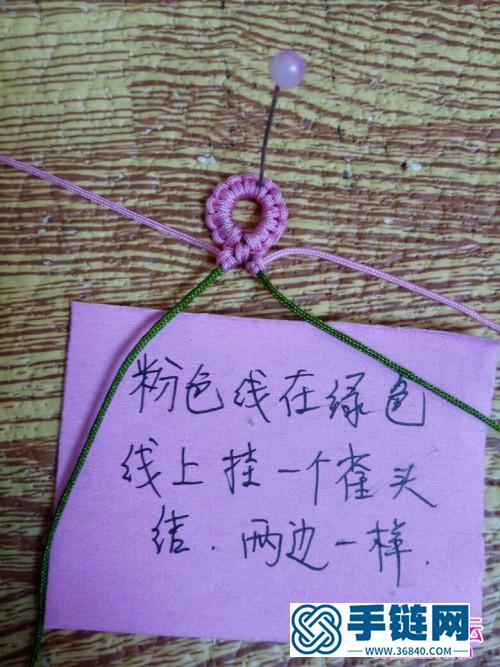 粉色线在绿色
线上挂一个雀头
结.两边一样.
手链网
www.36840.com